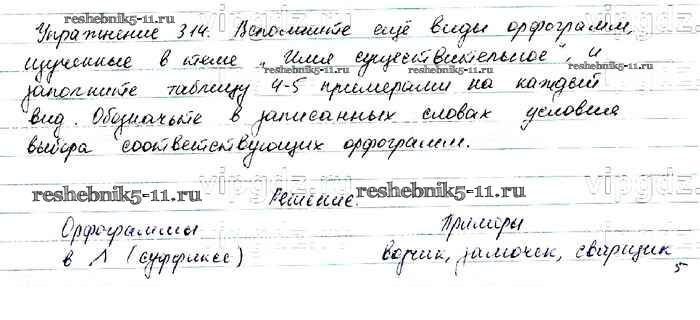 Упражнение 314. Вспомните ещё виды орфограмм,
reshebnik5-11.ru
изученные в теме "Имя существительное", и
reshebnik5-11.ru
заполните таблицу 4-5 примерами на каждый
вид. Обозначьте в записанных словах условия
выбора соответствующих орфограмм.
reshebnik5-11.ru reshebnik5-11.ru
Решение.
Орфограммы Примеры
в ^ (суффиксе) водчик, замочек, сварщик
5